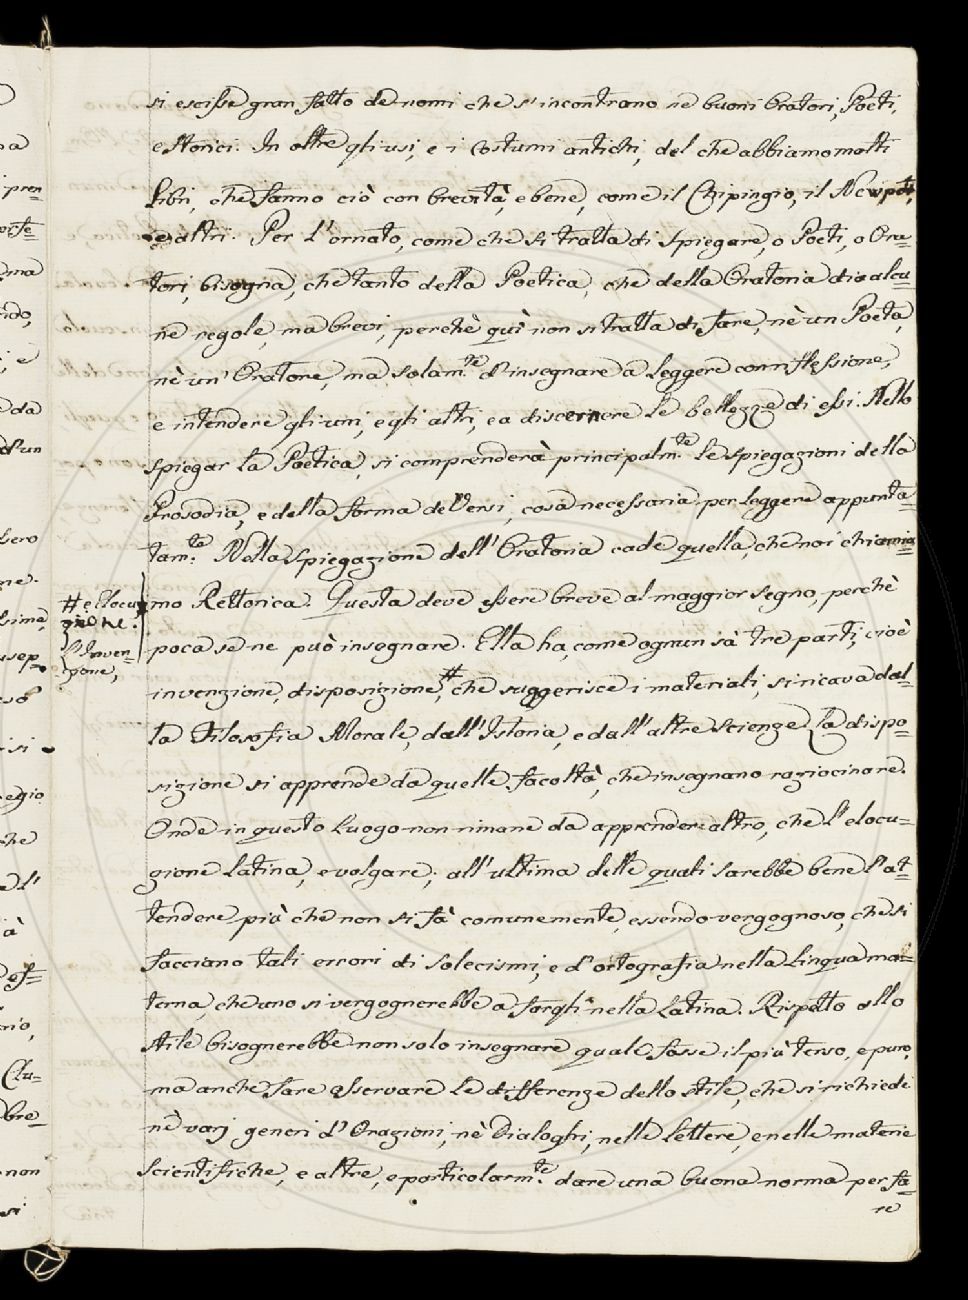 si escisse gran fatto de nomi che s'incontrano ne buoni Oratori, Poeti,
e Storici. In oltre gli usi, e i Costumi antichi, del che abbiamo molti
Libri, che fanno ciò con brevità, e bene, come il Chipingio, il
e altri. Per l'ornato, come che si tratta di spiegare, o Poeti, o Ora=
tori, bisogna, che tanto della Poetica, che della Oratoria dia alcu=
ne regole, ma brevi, perchè quì non si tratta di fare, nè un Poeta,
nè un' Oratore, ma solam.te d'insegnare a leggere con riflessione,
e intendere gli uni, e gli altri, e a discernere le bellezze di essi. Nello
spiegar la Poetica, si comprenderà principalm.te le spiegazioni della
Prosodia, e della forma de Versi, cosa necessaria per leggere appunta=
tam.te Nella Spiegazione dell'Oratoria cade quella, che noi chiamia=
mo Rettorica. Questa deve essere breve al maggior segno, perchè
poca se ne può insegnare. Ella ha, come ognun sà tre parti, cioè
invenzione, disposizione,# che suggerisce i materiali, si ricava dal=
la Filosofia Morale, dall'Istoria, e dall'altre Scienze. La dispo=
sizione si apprende da quelle facoltà, che insegnano raziocinare.
Onde in questo Luogo non rimane da apprendere altro, che l'elocu=
zione Latina, e volgare; all'ultima delle quali sarebbe bene l'at=
tendere più che non si fà comunemente, essendo vergognoso, che si
facciano tali errori di solecismi, e d'ortografia nella Lingua ma=
terna, che uno si vergognerebbe a fargli nella Latina. Rispetto allo
stile bisognerebbe non solo insegnare quale fosse il più terso, e puro,
ma anche fare osservare le differenze dello stile, che si richiede
nè varj generi d'Orazioni, nè Dialoghi, nelle Lettere, e nelle materie
Scientifiche, e altre, e particolarm.te dare una buona norma per fa=
re
# e Elocu
zione.
L'Inven=
zione,